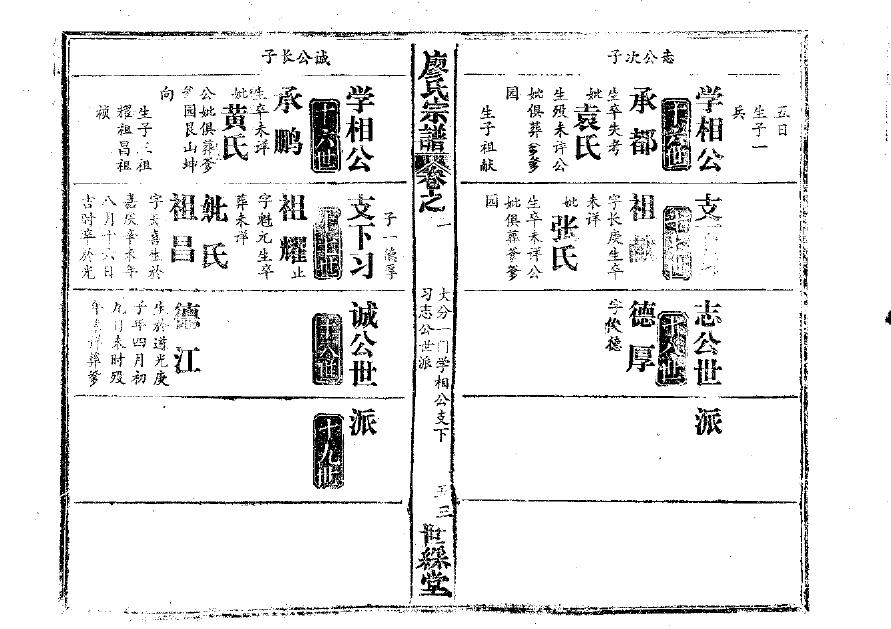 志公次子
五日
生子一
兵
学相公
十六世
承都
生卒失考
妣袁氏
生殁未详公
妣俱葬爹爹
园
生子祖献
支下
祖
字长庚生卒
未详
妣张氏
生卒未详公
妣俱葬爹爹
园
志公世
十八世
德厚
字俊德
派
廖氏宗谱
卷之一
大分一门学相公支下
习志公世派
三
世綵堂
诚公长子
学相公
十六世
承鹏
生卒未详
妣黄氏
公妣俱葬爹
爹园艮山坤
向
生子三祖
耀祖昌祖
祯
子一德厚
支下习
祖耀
止
字魁元生卒
葬未详
妣氏
祖昌
字大喜生於
嘉庆辛未年
八月十六日
吉时卒於光
诚公世
十八世
德江
生於道光庚
子年四月初
九日未时殁
年未详葬爹
派
十九世